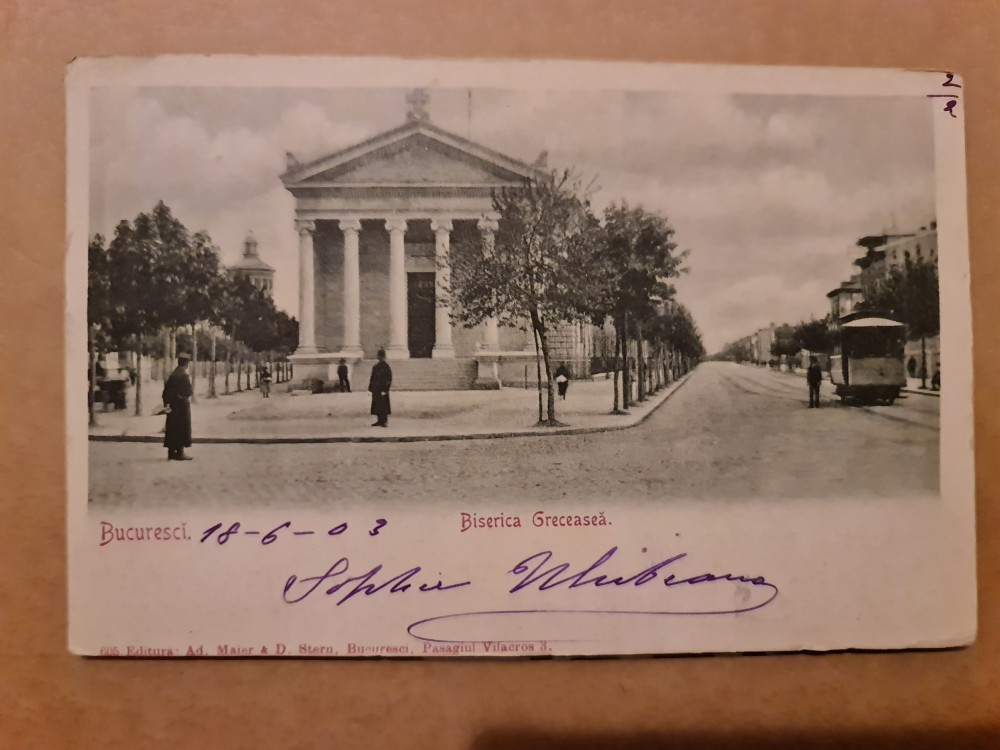 2
2
Bucuresci. 18-6-03 Biserica Greceaseă.
Sophie
605 Editura: Ad. Maier & D. Stern, Bucuresci, Pasagiul Vilacros 3.